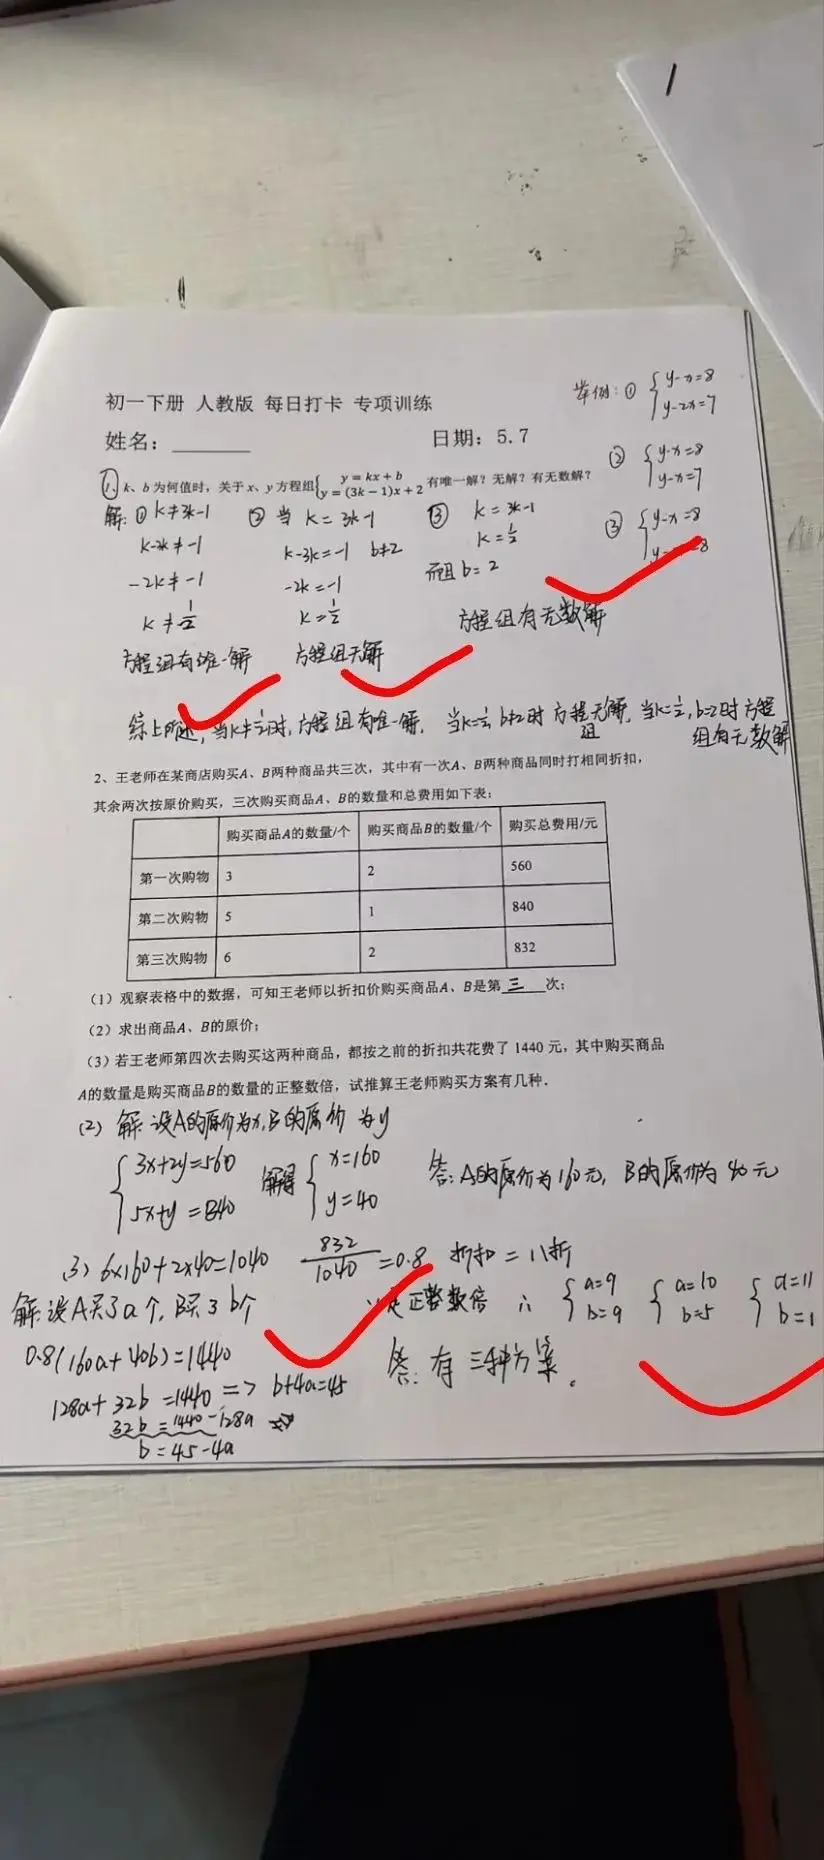 举例：① { y-x=8
y-2x=7
初一下册 人教版 每日打卡 专项训练
姓名：________ 日期：5.7
② { y-x=8
y-x=7
1、k、b为何值时，关于x、y方程组{ y=kx+b
y=(3k-1)x+2 有唯一解？无解？有无数解？
③ { y-x=8
y-x=8
解：① k≠3k-1
k-3k≠-1
-2k≠-1
k≠1/2
方程组有唯一解
② 当 k=3k-1
k-3k=-1 b≠2
-2k=-1
k=1/2
方程组无解
③ k=3k-1
k=1/2
而且b=2
方程组有无数解
综上所述，当k≠1/2时，方程组有唯一解，当k=1/2，b≠2时方程组无解，当k=1/2，b=2时方程
组有无数解
2、王老师在某商店购买A、B两种商品共三次，其中有一次A、B两种商品同时打相同折扣，
其余两次按原价购买，三次购买商品A、B的数量和总费用如下表：
购买商品A的数量/个 购买商品B的数量/个 购买总费用/元
第一次购物 3 2 560
第二次购物 5 1 840
第三次购物 6 2 832
（1）观察表格中的数据，可知王老师以折扣价购买商品A、B是第 三 次；
（2）求出商品A、B的原价；
（3）若王老师第四次去购买这两种商品，都按之前的折扣共花费了1440元，其中购买商品
A的数量是购买商品B的数量的正整数倍，试推算王老师购买方案有几种．
(2) 解：设A的原价为x，B的原价为y
{ 3x+2y=560
5x+y=840
解得 { x=160
y=40
答：A的原价为160元，B的原价为40元
3) 6×160+2×40=1040 832/1040=0.8 折扣=八折
解：设A买了a个，B买了b个
0.8(160a+40b)=1440
128a+32b=1440 => b+4a=45
32b=1440-128a
b=45-4a
正整数倍 ∴ { a=9
b=9 { a=10
b=5 { a=11
b=1
答：有三种方案。